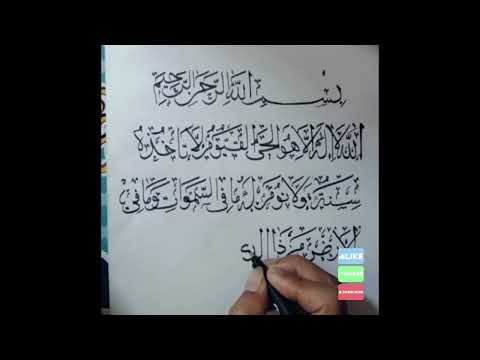 بسم الله الرحمن الرحيم
الله لا اله الا هو الحي القيوم لا تاخذه
سنة ولا نوم له ما في السموات وما في
الارض من ذا الذي
LIKE